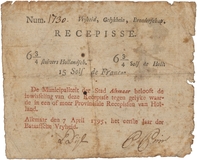 Num. 1730. Vryheid, Gelykheid, Broederschap.
RECEPISSE.
6¾ Stuivers Hollandsch. 6¾ Sols de Holl:
15 Sols de France
De Municipaliteit der Stad Alkmaar belooft de
inwisseling van deze Recepisse tegen gelyke waarde
in een of meer Provinciale Recepissen van Holland.
Alkmaar den 7 April 1795. het eerste jaar der
Bataafsche Vryheid.